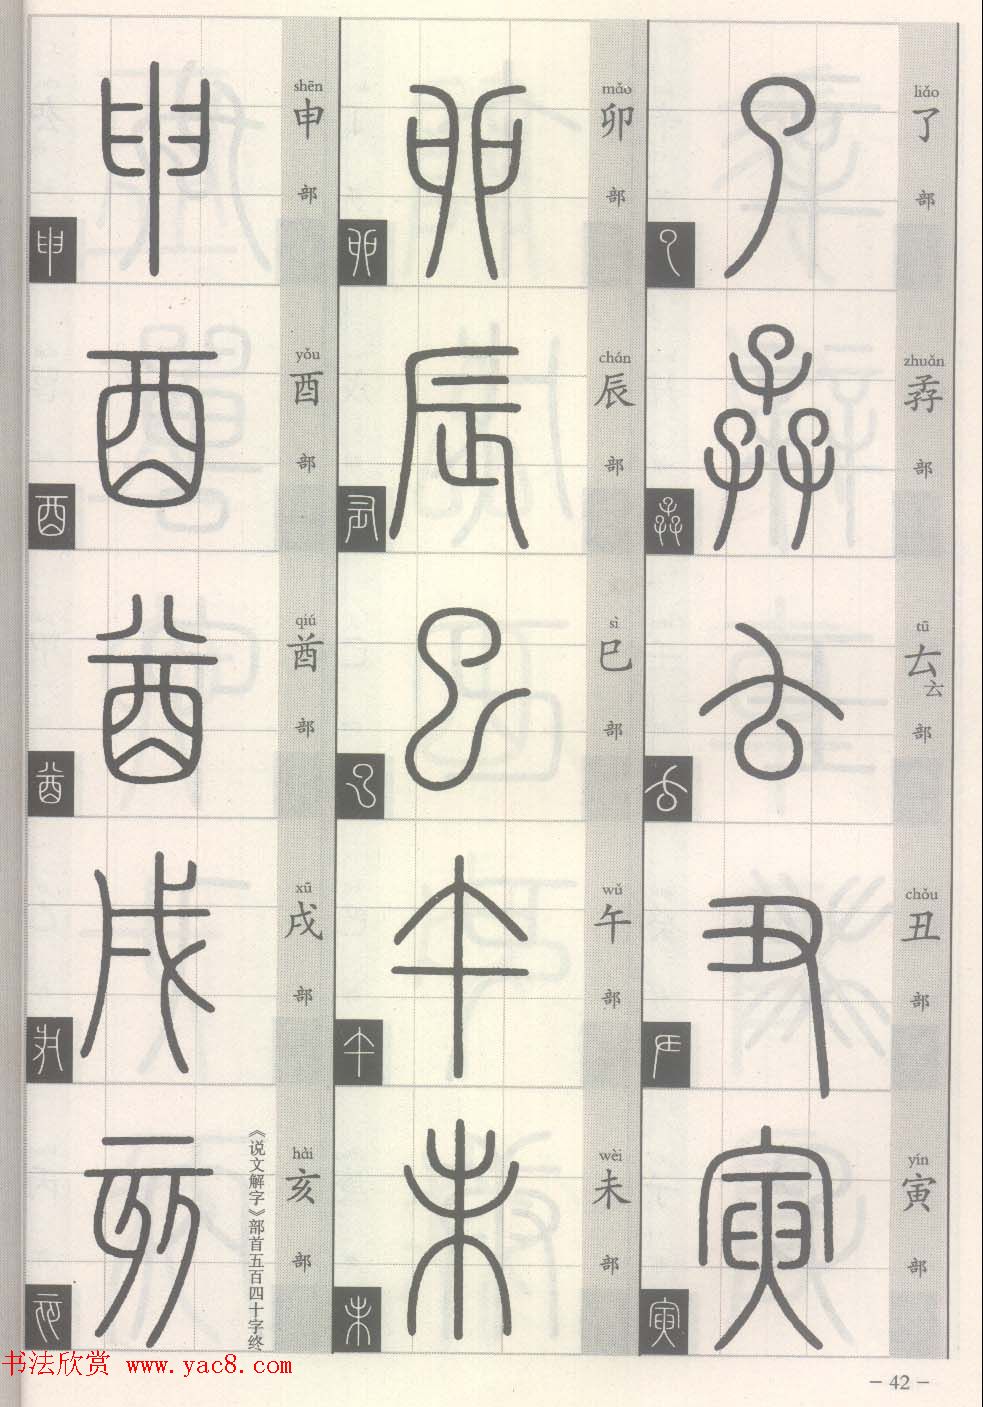 liǎo
了
部
zhuǎn
孨
部
tū
𠫓
云
部
chǒu
丑
部
yín
寅
部
mǎo
卯
部
chén
辰
部
sì
巳
部
wǔ
午
部
wèi
未
部
shēn
申
部
yǒu
酉
部
qiú
酋
部
xū
戌
部
hài
亥
部
《说文解字》部首五百四十字终
书法欣赏 www.yac8.com
- 42 -